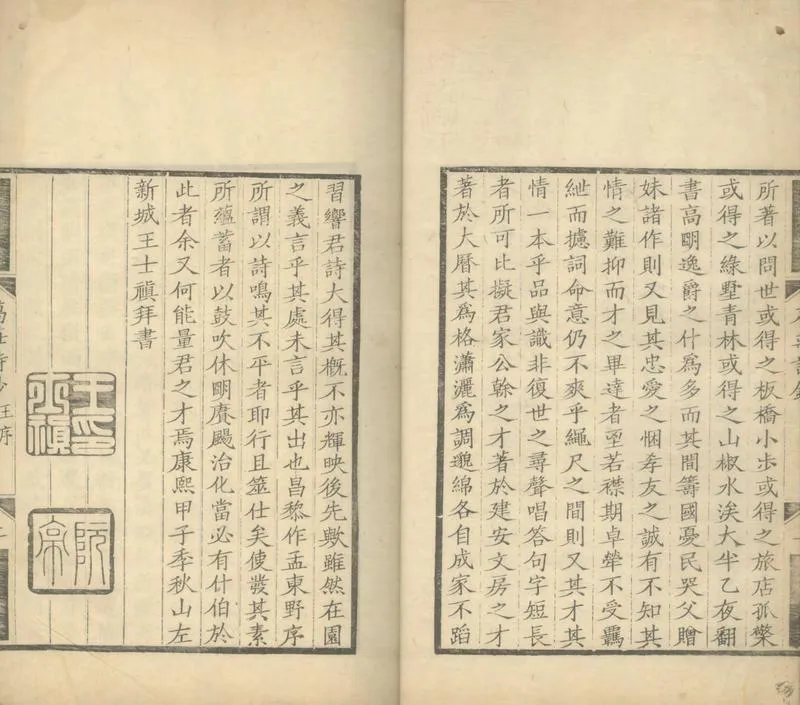 所著以問世或得之板橋小步或得之旅店孤檠
或得之綠墅青林或得之山椒水涘大半乙夜翻
書高明逸爵之什爲多而其間籌國憂民哭父贈
妹諸作則又見其忠愛之悃孝友之誠有不知其
情之難抑而才之畢達者至若襟期卓犖不受羈
紲而攄詞命意仍不爽乎繩尺之間則又其才其
情一本乎品與識非復世之尋聲唱答句字短長
者所可比擬君家公榦之才著於建安文房之才
著於大曆其爲格瀟灑爲調邈綿各自成家不蹈
習響君詩大得其概不亦輝映後先歟雖然在園
之義言乎其處未言乎其出也昌黎作孟東野序
所謂以詩鳴其不平者耶行且筮仕矣使發其素
所蘊蓄者以鼓吹休明賡颺治化當必有什伯於
此者余又何能量君之才焉康熙甲子季秋山左
新城王士禛拜書
王印士禛
阮亭
葛莊詩鈔 王序 二